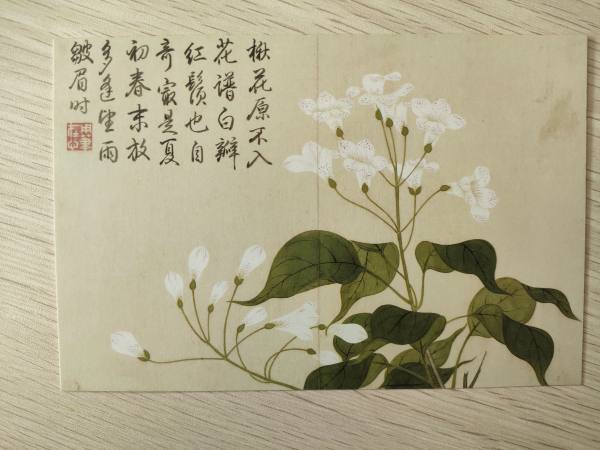 楸花原不入
花谱白瓣
红鬚也自
奇最是夏
初春末放
多逢望雨
皱眉时